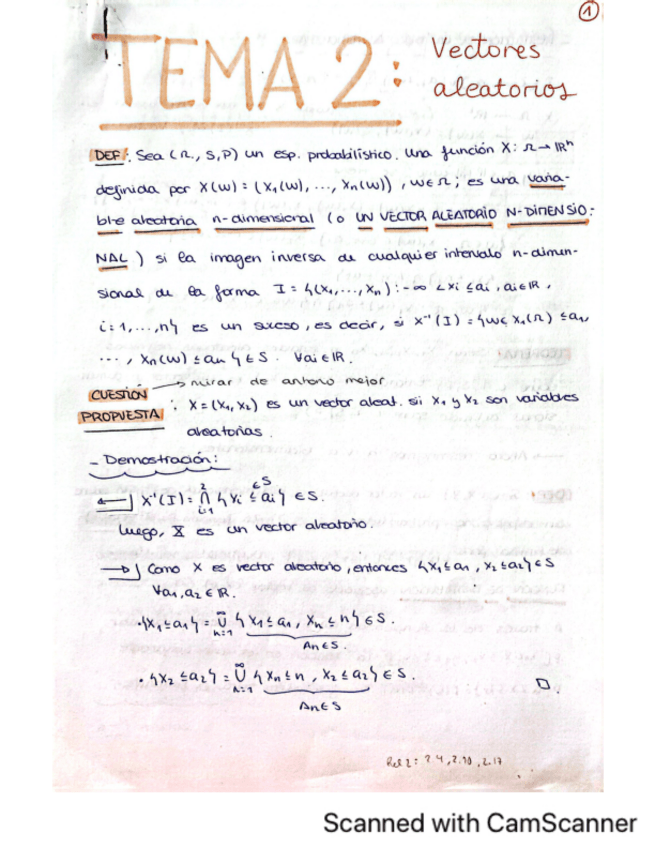 1
TEMA 2: Vectores
aleatorios
DEF: Sea (Ω, S, P) un esp. probabilístico. Una función X: Ω→ℝⁿ
definida por X(w) = (X₁(w), ..., Xn(w)), w∈Ω; es una varia-
ble aleatoria n-dimensional (o UN VECTOR ALEATORIO N-DIMENSIO-
NAL) si la imagen inversa de cualquier intervalo n-dimen-
sional de la forma I = {(x₁,...,xn): -∞ < xi ≤ ai, ai∈ℝ,
i=1,...,n} es un suceso, es decir, si X⁻¹(I) = {w∈ X₁(Ω) ≤ a₁,
..., Xn(w) ≤ an} ∈ S. ∀ai∈ℝ.
CUESTIÓN → mirar de antonio mejor
PROPUESTA : X = (X₁, X₂) es un vector aleat. sii X₁ y X₂ son variables
aleatorias.
- Demostración:
∈S
←] X⁻¹(I) = ∩²ᵢ₌₁ {Xi ≤ ai} ∈ S.
Luego, X es un vector aleatorio.
→] Como X es vector aleatorio, entonces {X₁ ≤ a₁, X₂ ≤ a₂} ∈ S
∀a₁, a₂ ∈ ℝ.
· {X₁ ≤ a₁} = ∪^∞ₙ₌₁ {X₁ ≤ a₁, Xn ≤ n} ∈ S.
An∈S.
· {X₂ ≤ a₂} = ∪^∞ₙ₌₁ {Xn ≤ n, X₂ ≤ a₂} ∈ S. □
An∈S
Rel 2: 2.10, 2.17
Scanned with CamScanner